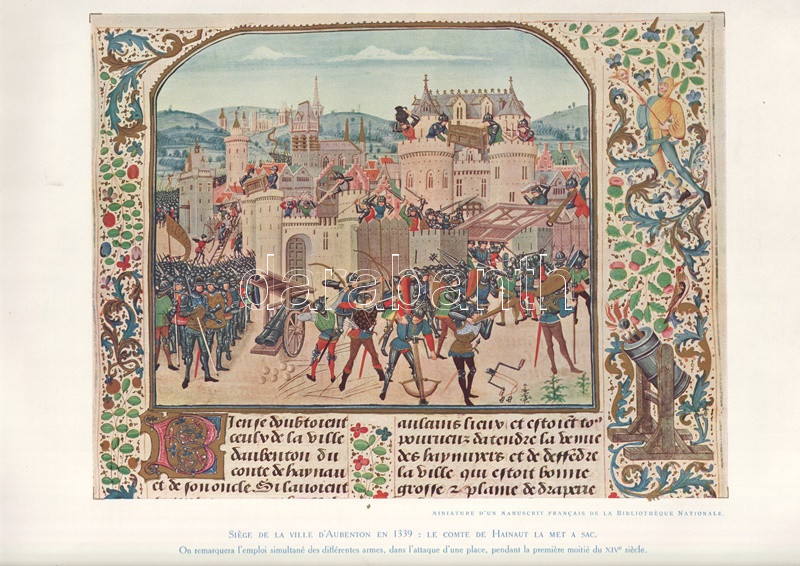 darabanth
Bien se doubtoient
ceulx de la ville
daubenton du
conte de haynau
et de son oncle. Si lauoient
aulains lieux et estoiēt to9
pourueuz datendre la venue
des haynuyers et de deffēdre
la ville qui estoit bonne
grosse ⁊ plaine de draperie
MINIATURE D'UN MANUSCRIT FRANÇAIS DE LA BIBLIOTHÈQUE NATIONALE.
SIÈGE DE LA VILLE D'AUBENTON EN 1339 : LE COMTE DE HAINAUT LA MET A SAC.
On remarquera l'emploi simultané des différentes armes, dans l'attaque d'une place, pendant la première moitié du XIVe siècle.